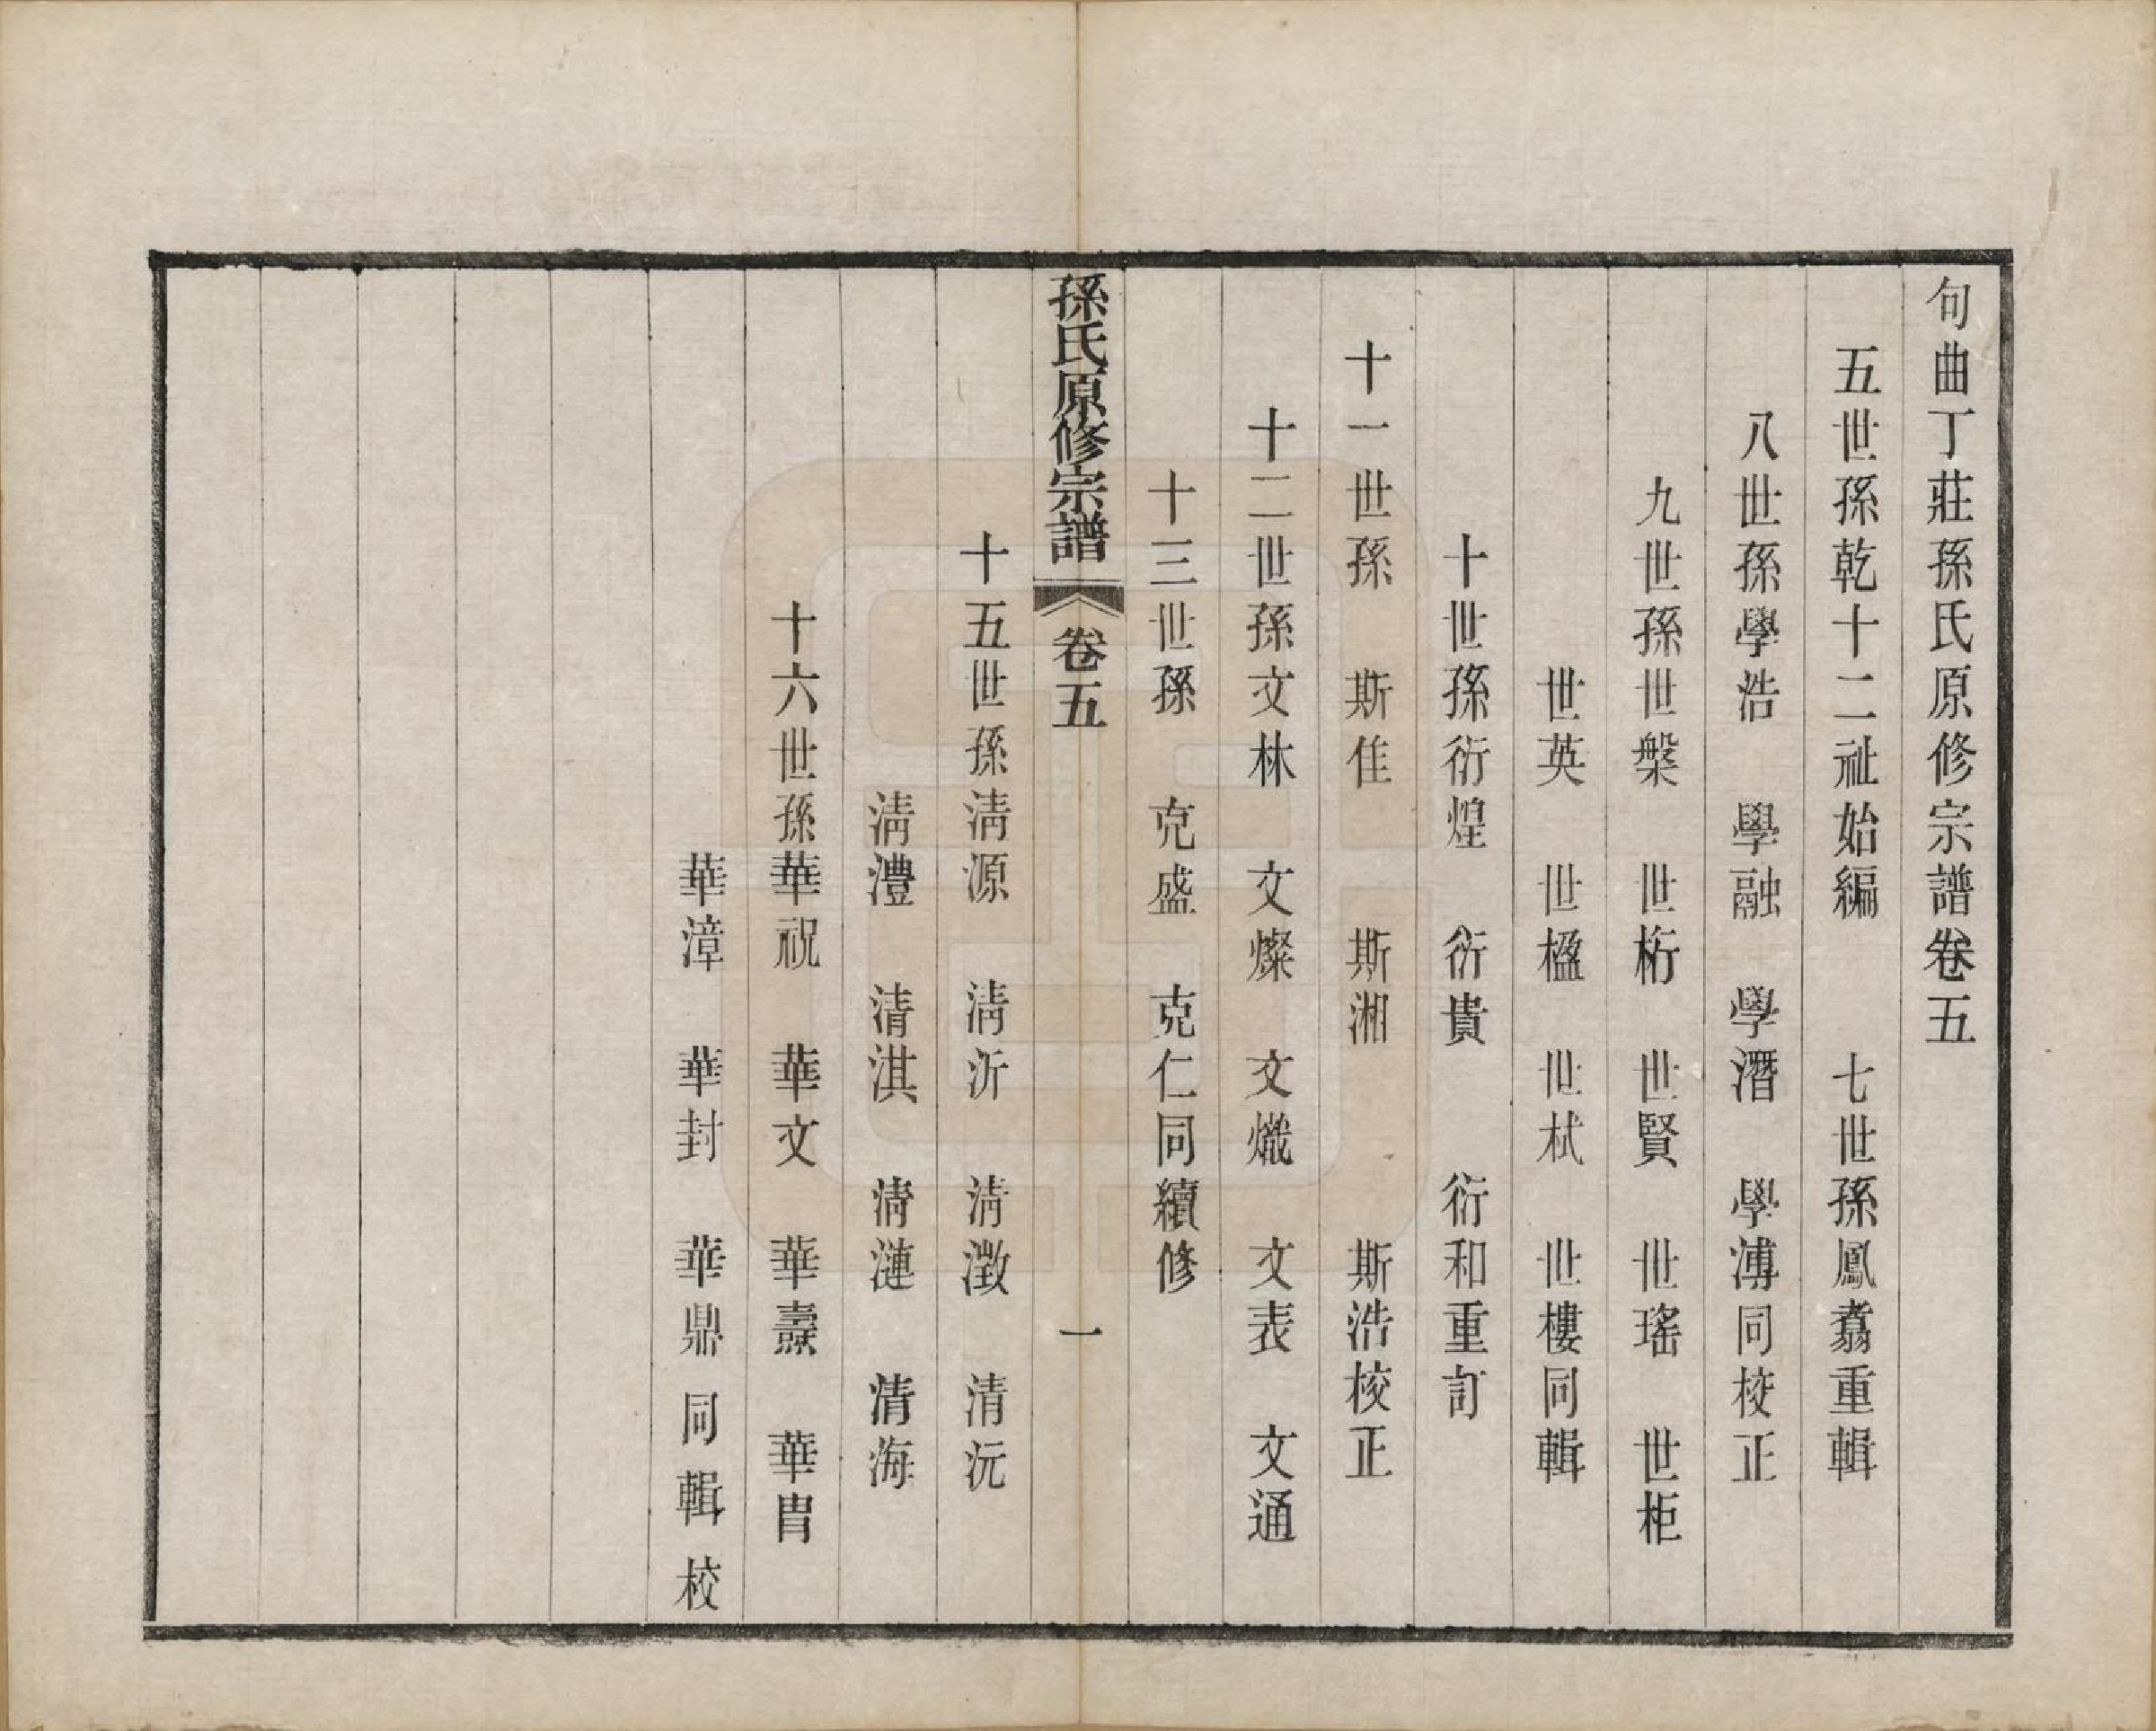 句曲丁莊孫氏原修宗譜卷五
五世孫乾十二祉始編　七世孫鳳翥重輯
八世孫學浩　學融　學潛　學溥同校正
九世孫世槃　世桁　世賢　世瑤　世柜
世英　世楹　世栻　世樓同輯
十世孫衍煌　衍貴　衍和重訂
十一世孫　斯佳　斯湘　斯浩校正
十二世孫文林　文燦　文熾　文表　文通
十三世孫　克盛　克仁同續修
孫氏原修宗譜　卷五　一
十五世孫淸源　淸沂　淸澂　淸沅
淸澧　淸淇　淸漣　淸海
十六世孫華祝　華文　華壽　華胄
華漳　華封　華鼎同輯校